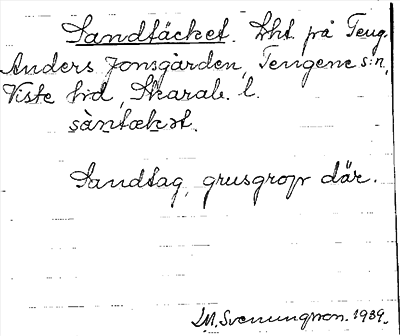 Sandtäcket. Lht. på Teng.
Anders Jonsgården, Tengene s:n,
Viste hd, Skarab. l.
sàntækət.
Sandtag, grusgrop där.
M. Svenungsson. 1939.